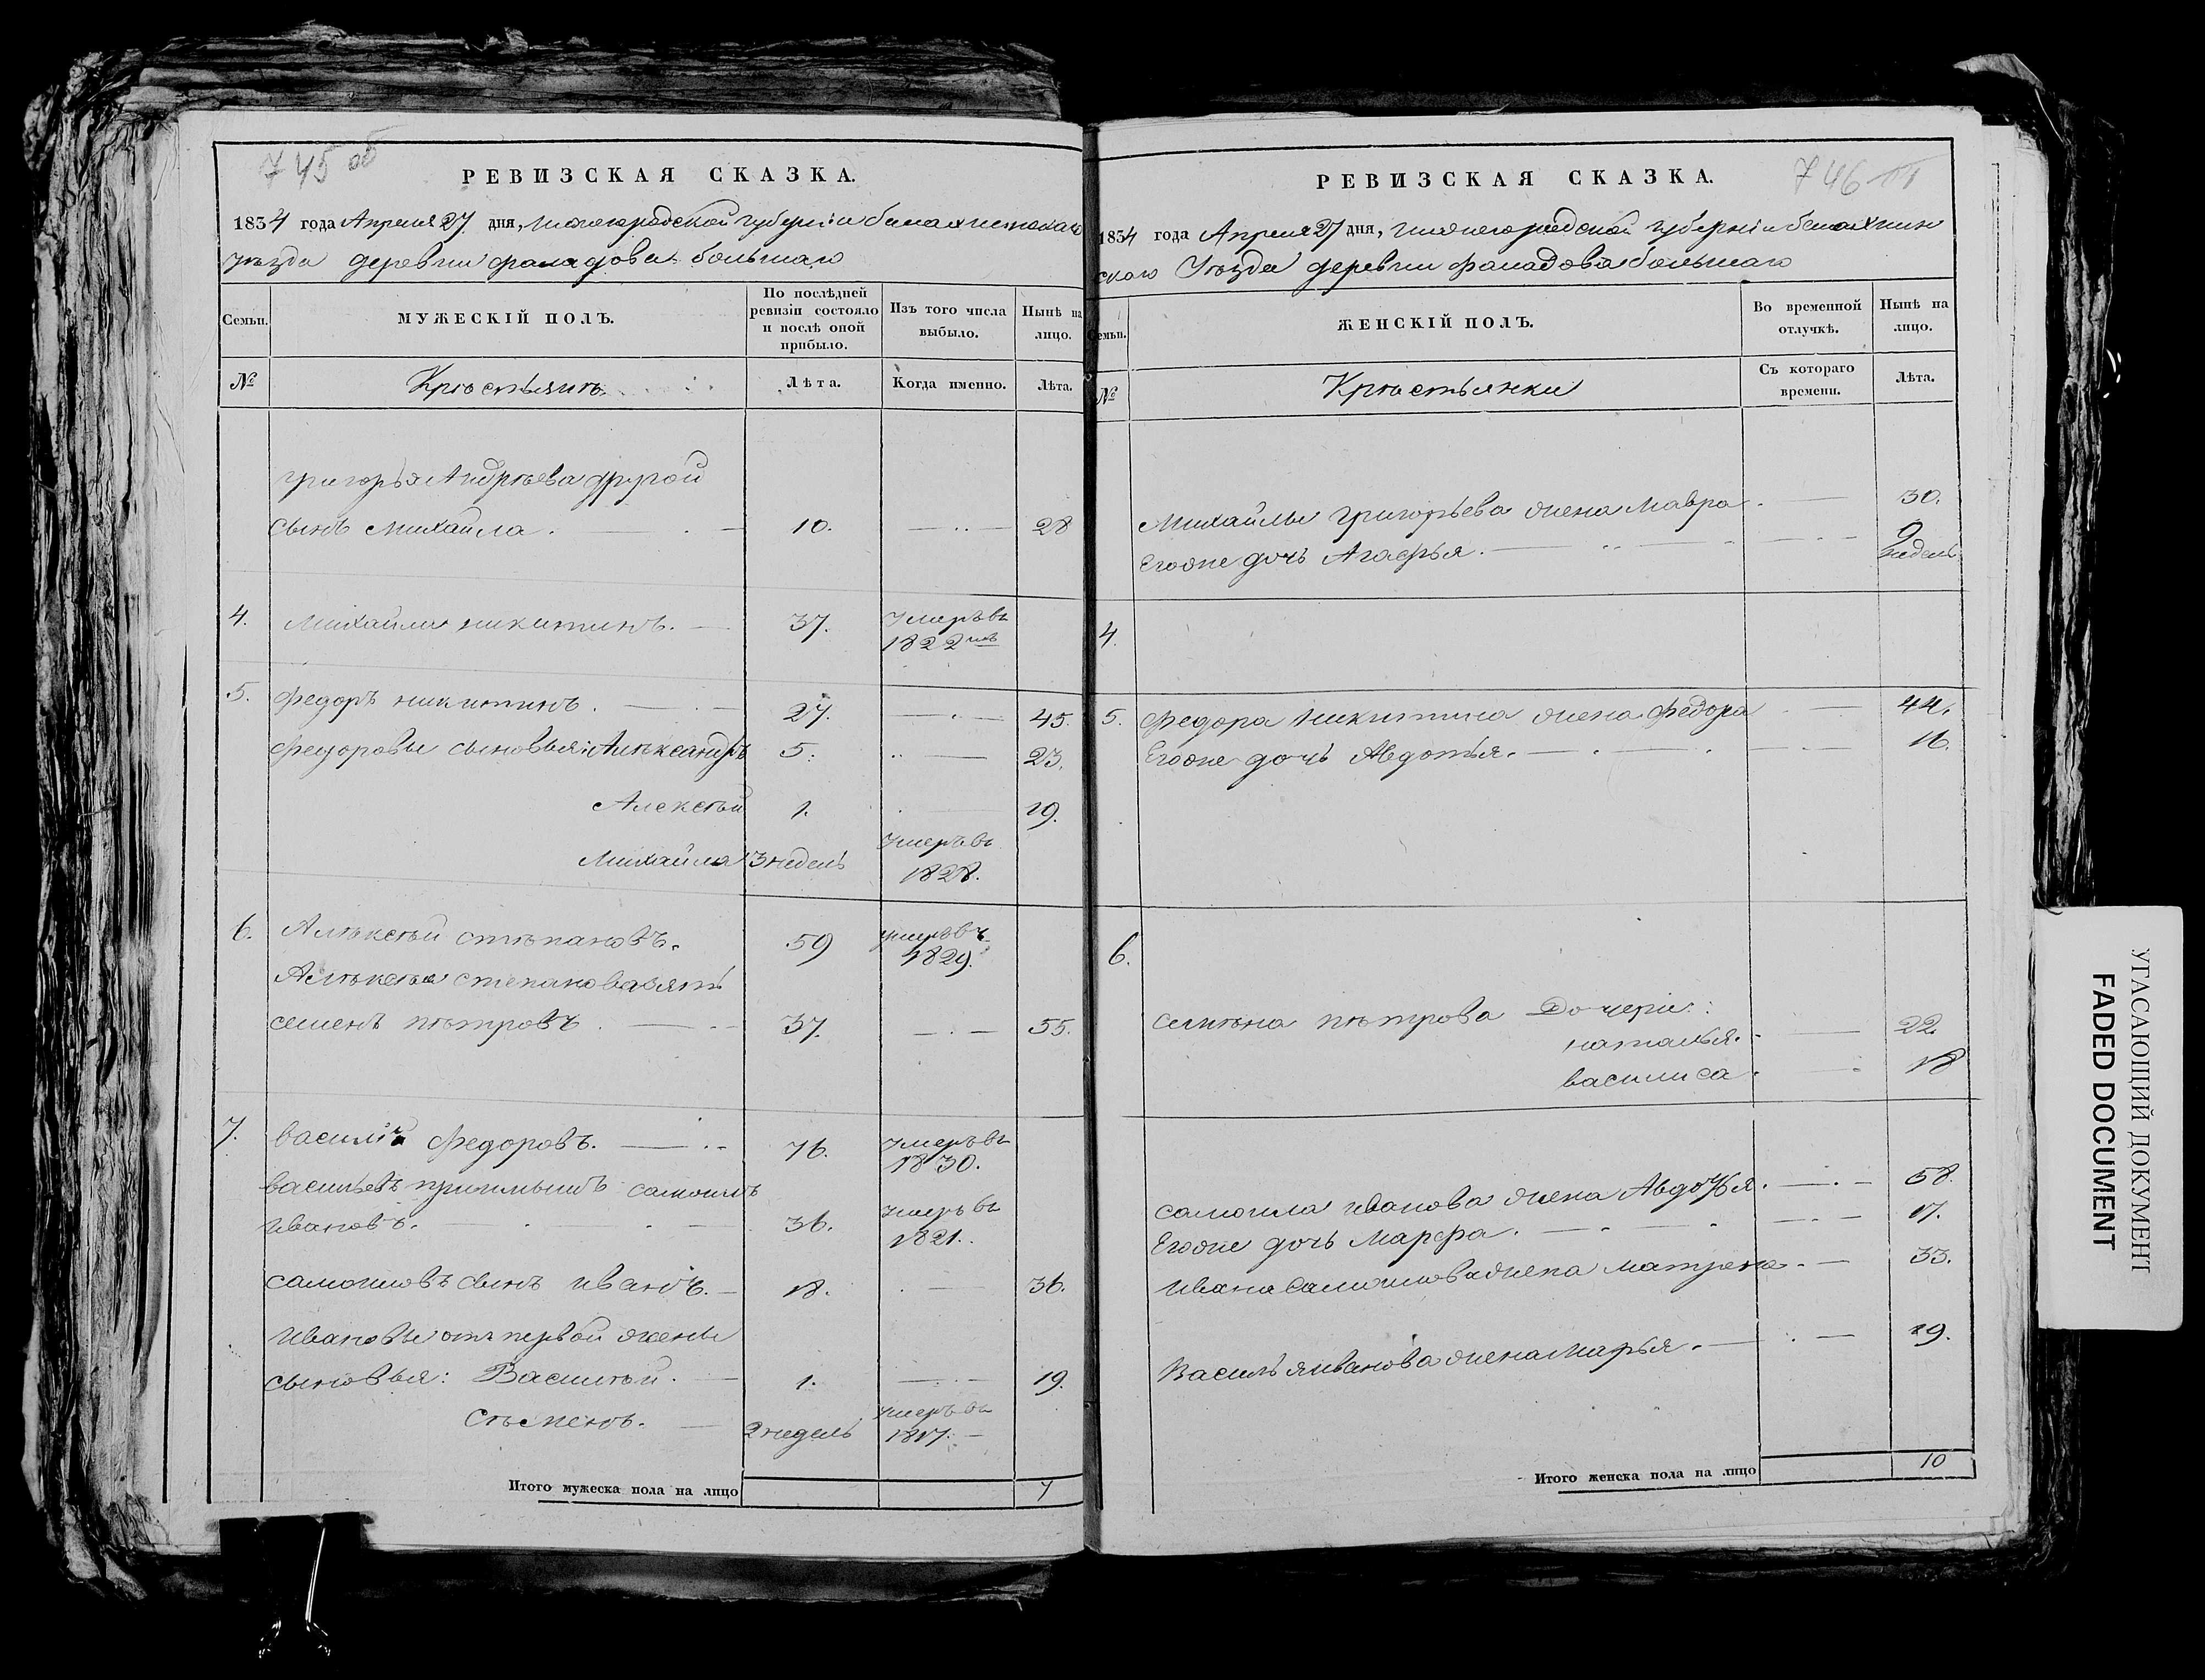 745 об
РЕВИЗСКАЯ СКАЗКА.
1834 года Апреля 27 дня, Нижегородской губерніи балахнинскаго
уѣзда деревни фаладова большаго
Семьи.
МУЖЕСКІЙ ПОЛЪ.
По послѣдней ревизіи состояло и послѣ оной прибыло.
Изъ того числа выбыло.
Нынѣ на лицо.
№
Крѣстьянѣ
Лѣта.
Когда именно.
Лѣта.
григорья Андрѣева другой
сынъ михайла. 10. 28
4. Михайла никитинъ. 37. Умеръ въ
1822мъ
5. федоръ никитинъ. 27. 45.
федоровы сыновья: Алѣксандръ 5. 23.
Алексѣй 1. 19.
Михайла 3 недель Умеръ въ
1828.
6. Алѣксѣй стѣпановъ. 59 умеръ въ
1829.
Алѣксѣя степанова зять
семенъ пѣтровъ 37. 55.
7. василій федоровъ. 76. Умеръ въ
1830.
васильевъ приимышъ самоилъ
ивановъ. 36. умеръ въ
1821.
самоиловъ сынъ иванъ. 18. 36.
ивановы отъ первой жены
сыновья: Василѣй. 1. 19.
Сѣменъ. 2 недель умеръ въ
1817.
Итого мужеска пола на лицо 7
746
РЕВИЗСКАЯ СКАЗКА.
1834 года Апреля 27 дня, нижегородской губерніи балахнин
скаго Уѣзда деревни фаладова большаго
Семьи.
ЖЕНСКІЙ ПОЛЪ.
Во временной отлучкѣ.
Нынѣ на лицо.
№
Крѣстьянки
Съ котораго времени.
Лѣта.
Михайлы григорьева жена мавра 30.
Егоже дочь Агафья. 9
недель
4.
5. федора никитина жена федора 44.
Егоже дочь Авдотья. 16.
6.
семѣна пѣтрова Дочери:
наталья. 22.
василиса. 18
самоила иванова жена Авдотья. 58.
Егоже дочь Марфа. 17.
ивана самоилова жена матрена 33.
Василья иванова жена марья. 19.
Итого женска пола на лицо 10
УГАСАЮЩИЙ ДОКУМЕНТ
FADED DOCUMENT